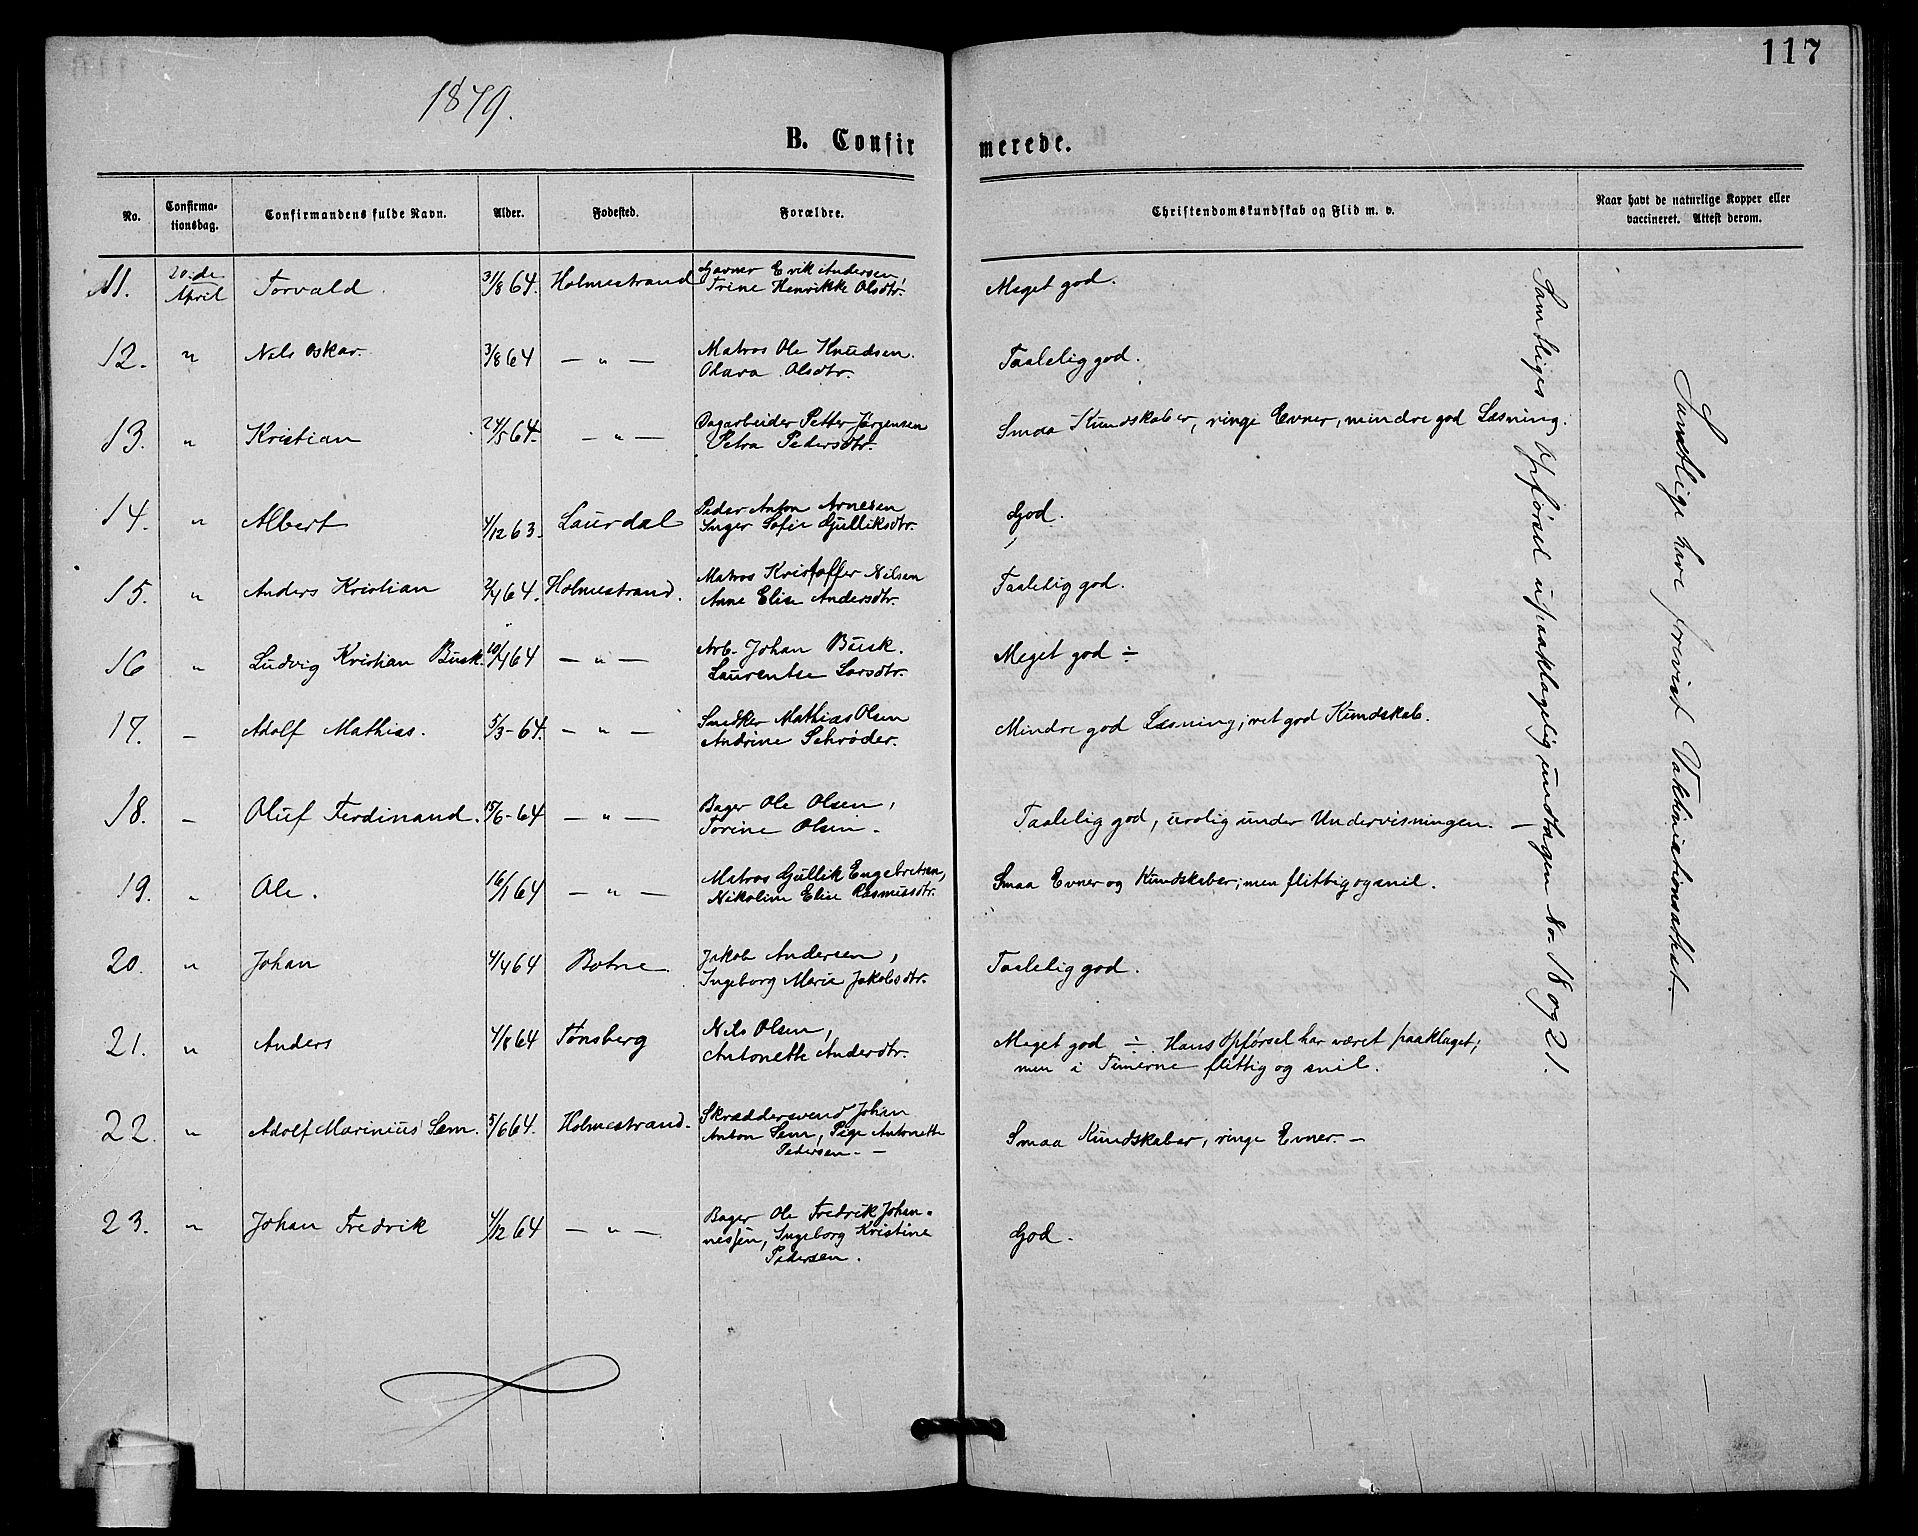 117
1879.
B. Confirmerede.
No. Confirmationsdag. Confirmandens fulde Navn. Alder. Fødested. Forældre. Christendomskundskab og Flid m. v. Naar havt de naturlige Kopper eller vaccineret. Attest derom.
11. 20de April Torvald. 31/8 64. Holmestrand Garver Erik Andersen, Meget god.
Trine Henrikke Olsdtr.
12. " Nils Oskar. 3/8 64 — " — Matros Ole Knudsen. Taalelig god.
Olava Olsdtr.
13. " Kristian 24/5 64. — " — Dagarbeider Petter Jørgensen Smaa Kundskaber, ringe Evner, mindre god Læsning.
Petra Pedersdtr.
14. " Albert 4/12 63. Laurdal Peder Anton Arnesen God.
Inger Sofie Gulliksdtr.
15. " Anders Kristian 2/4 64. Holmestrand. Matros Kristoffer Nilsen Taalelig god.
Anne Elise Andersdtr.
16 " Ludvig Kristian Busk. 10/4 64 — " — Arb. Johan Busk. Meget god ÷
Laurentse Larsdtr.
17. – Adolf Mathias. 5/3-64. — " — Snedker Mathias Olsen Mindre god Læsning; ret god Kundskab.
Andrine Schrøder.
18. – Oluf Ferdinand. 15/6-64 — " — Bager Ole Olsen, Taalelig god, urolig under Undervisningen. —
Torine Olsen.
19. " Ole. 16/1 64 — " — Matros Gullik Engebretsen, Smaa Evner og Kundskaber; men flittig og snil.
Nikoline Elise Rasmusdtr.
20. " Johan 4/4 64 Botne. Jakob Andersen, Taalelig god.
Ingeborg Marie Jakobsdtr.
21. " Anders 4/8 64 Tønsberg Nils Olsen, Meget god ÷ Hans Opførsel har været paaklaget;
Antonette Andersdtr. men i Timerne flittig og snil.
22. " Adolf Marinius Sem. 5/6 64. Holmestrand. Skræddersvend Johan
Anton Sem, Pige Antonette Smaa Kundskaber, ringe Evner. —
Pedersen. —
23. " Johan Fredrik 4/12 64 — " — Bager Ole Fredrik Johan-
nessen, Ingeborg Kristine God.
Pedersen.
Samtliges Opførsel upaaklagelig undtagen No. 18 og 21.
Samtlige have forevist Vakkinationsattest. —